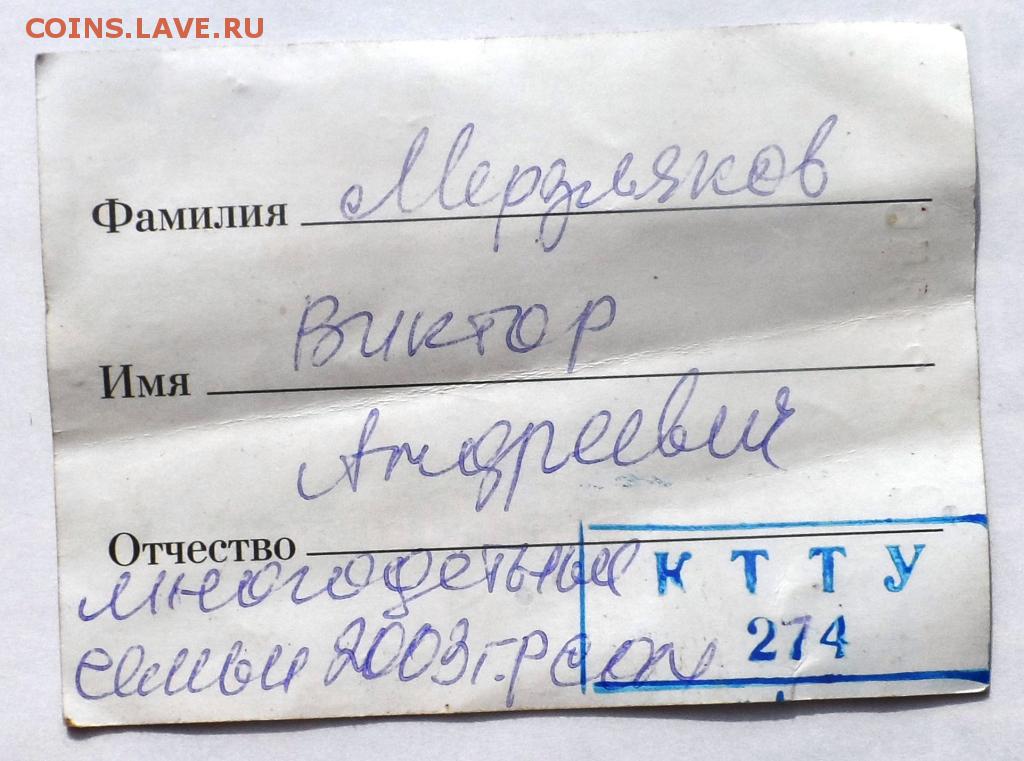 COINS.LAVE.RU
Фамилия Мерзляков
Имя Виктор
Отчество Андреевич
многодетные
семьи 2003г.р
КТТУ
274